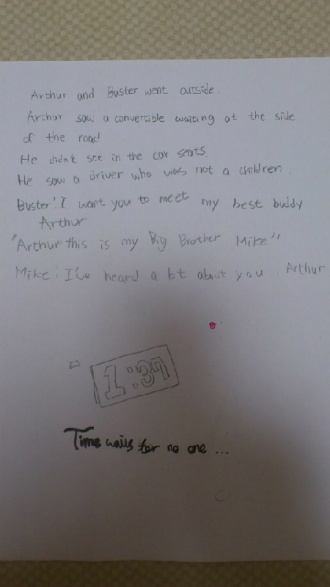 Arthur and Buster went outside.
Arthur saw a convertible waiting at the side
of the road
He didn't see in the car seats.
He saw a driver who was not a children.
Buster: I want you to meet my best buddy
Arthur
"Arthur this is my Big Brother Mike"
Mike: I've heard a lot about you Arthur
1:37
Time waits for no one...